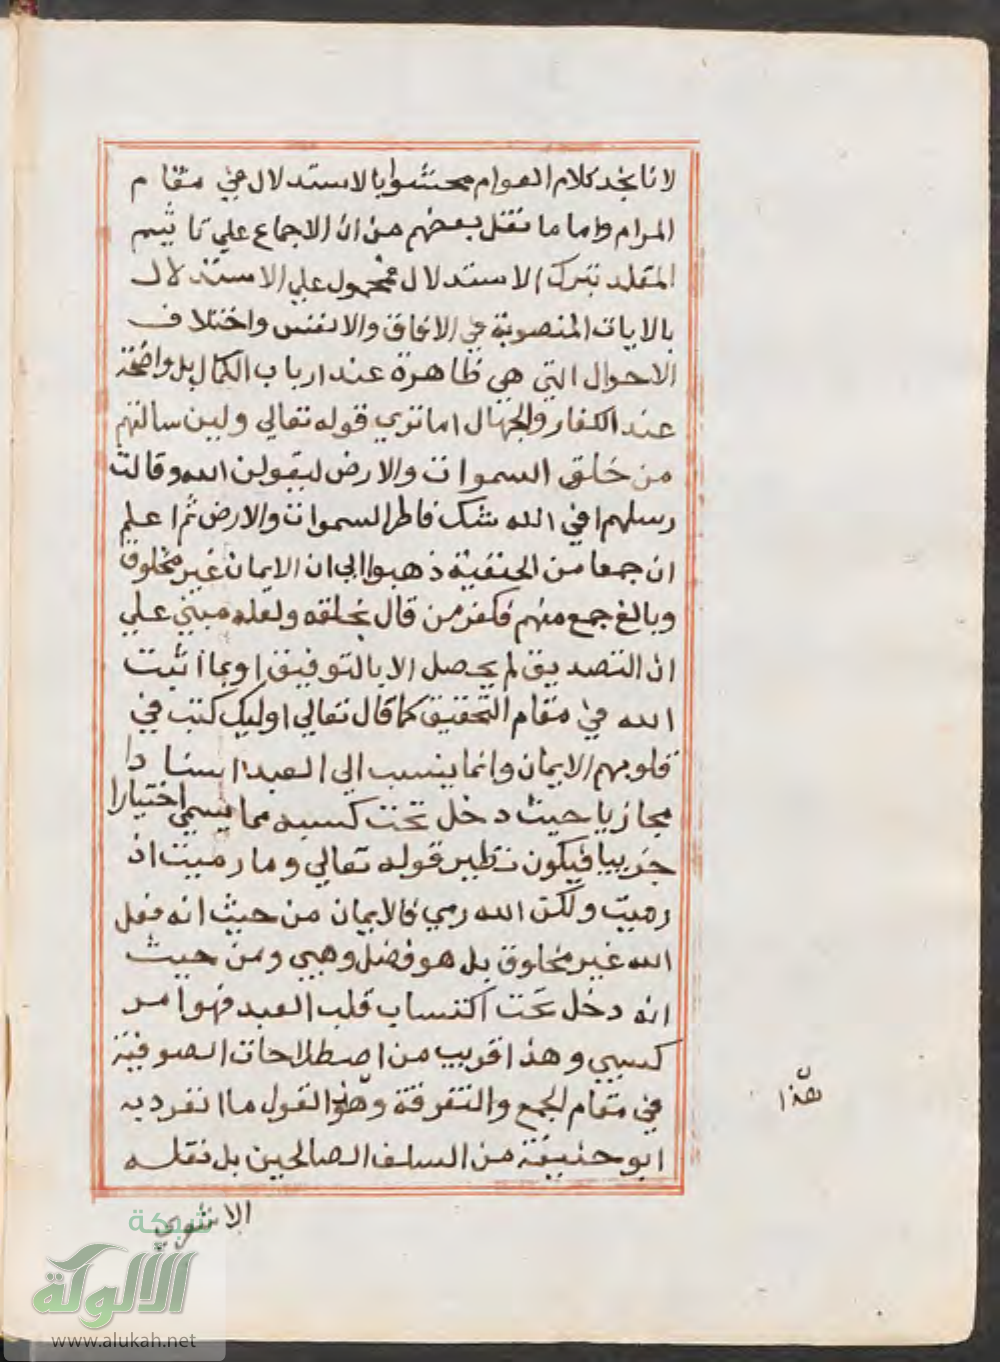 لانا نجد كلام العوام محشوا بالاستدلال في مقام
المرام واما ما نقل بعضهم من ان الاجماع علي تاثيم
المقلد بترك الاستدلال فمحمول علي الاستدلال
بالايات المنصوبة في الافاق والانفس واختلاف
الاحوال التي هي ظاهرة عند ارباب الكمال بل واضحة
عند الكفار والجهال اما تري قوله تعالي ولين سالتهم
من خلق السموات والارض ليقولن الله وقالت
رسلهم افي الله شك فاطر السموات والارض ثم اعلم
ان جمعا من الحنفية ذهبوا الي ان الايمان غير مخلوق
وبالغ جمع منهم فكفر من قال بخلقه ولعله مبني علي
ان التصديق لم يحصل الا بالتوفيق او بما اثبت
الله في مقام التحقيق كما قال تعالي اوليك كتب في
قلوبهم الايمان وانما ينسب الي العبد اسنادا
مجازيا حيث دخل تحت كسبه مما يسمي اختيارا
جزييا فيكون نظير قوله تعالي وما رميت اذ
رميت ولكن الله رمي فالايمان من حيث انه فعل
الله غير مخلوق بل هو فضل وهبي ومن حيث
انه دخل تحت اكتساب قلب العبد فهو امر
كسبي وهذا قريب من اصطلاحات الصوفية
في مقام الجمع والتفرقة وهو القول ما انفرد به
هذا
ابو حنيفة من السلف الصالحين بل نقله
الاشعري
شبكة
الألوكة
www.alukah.net